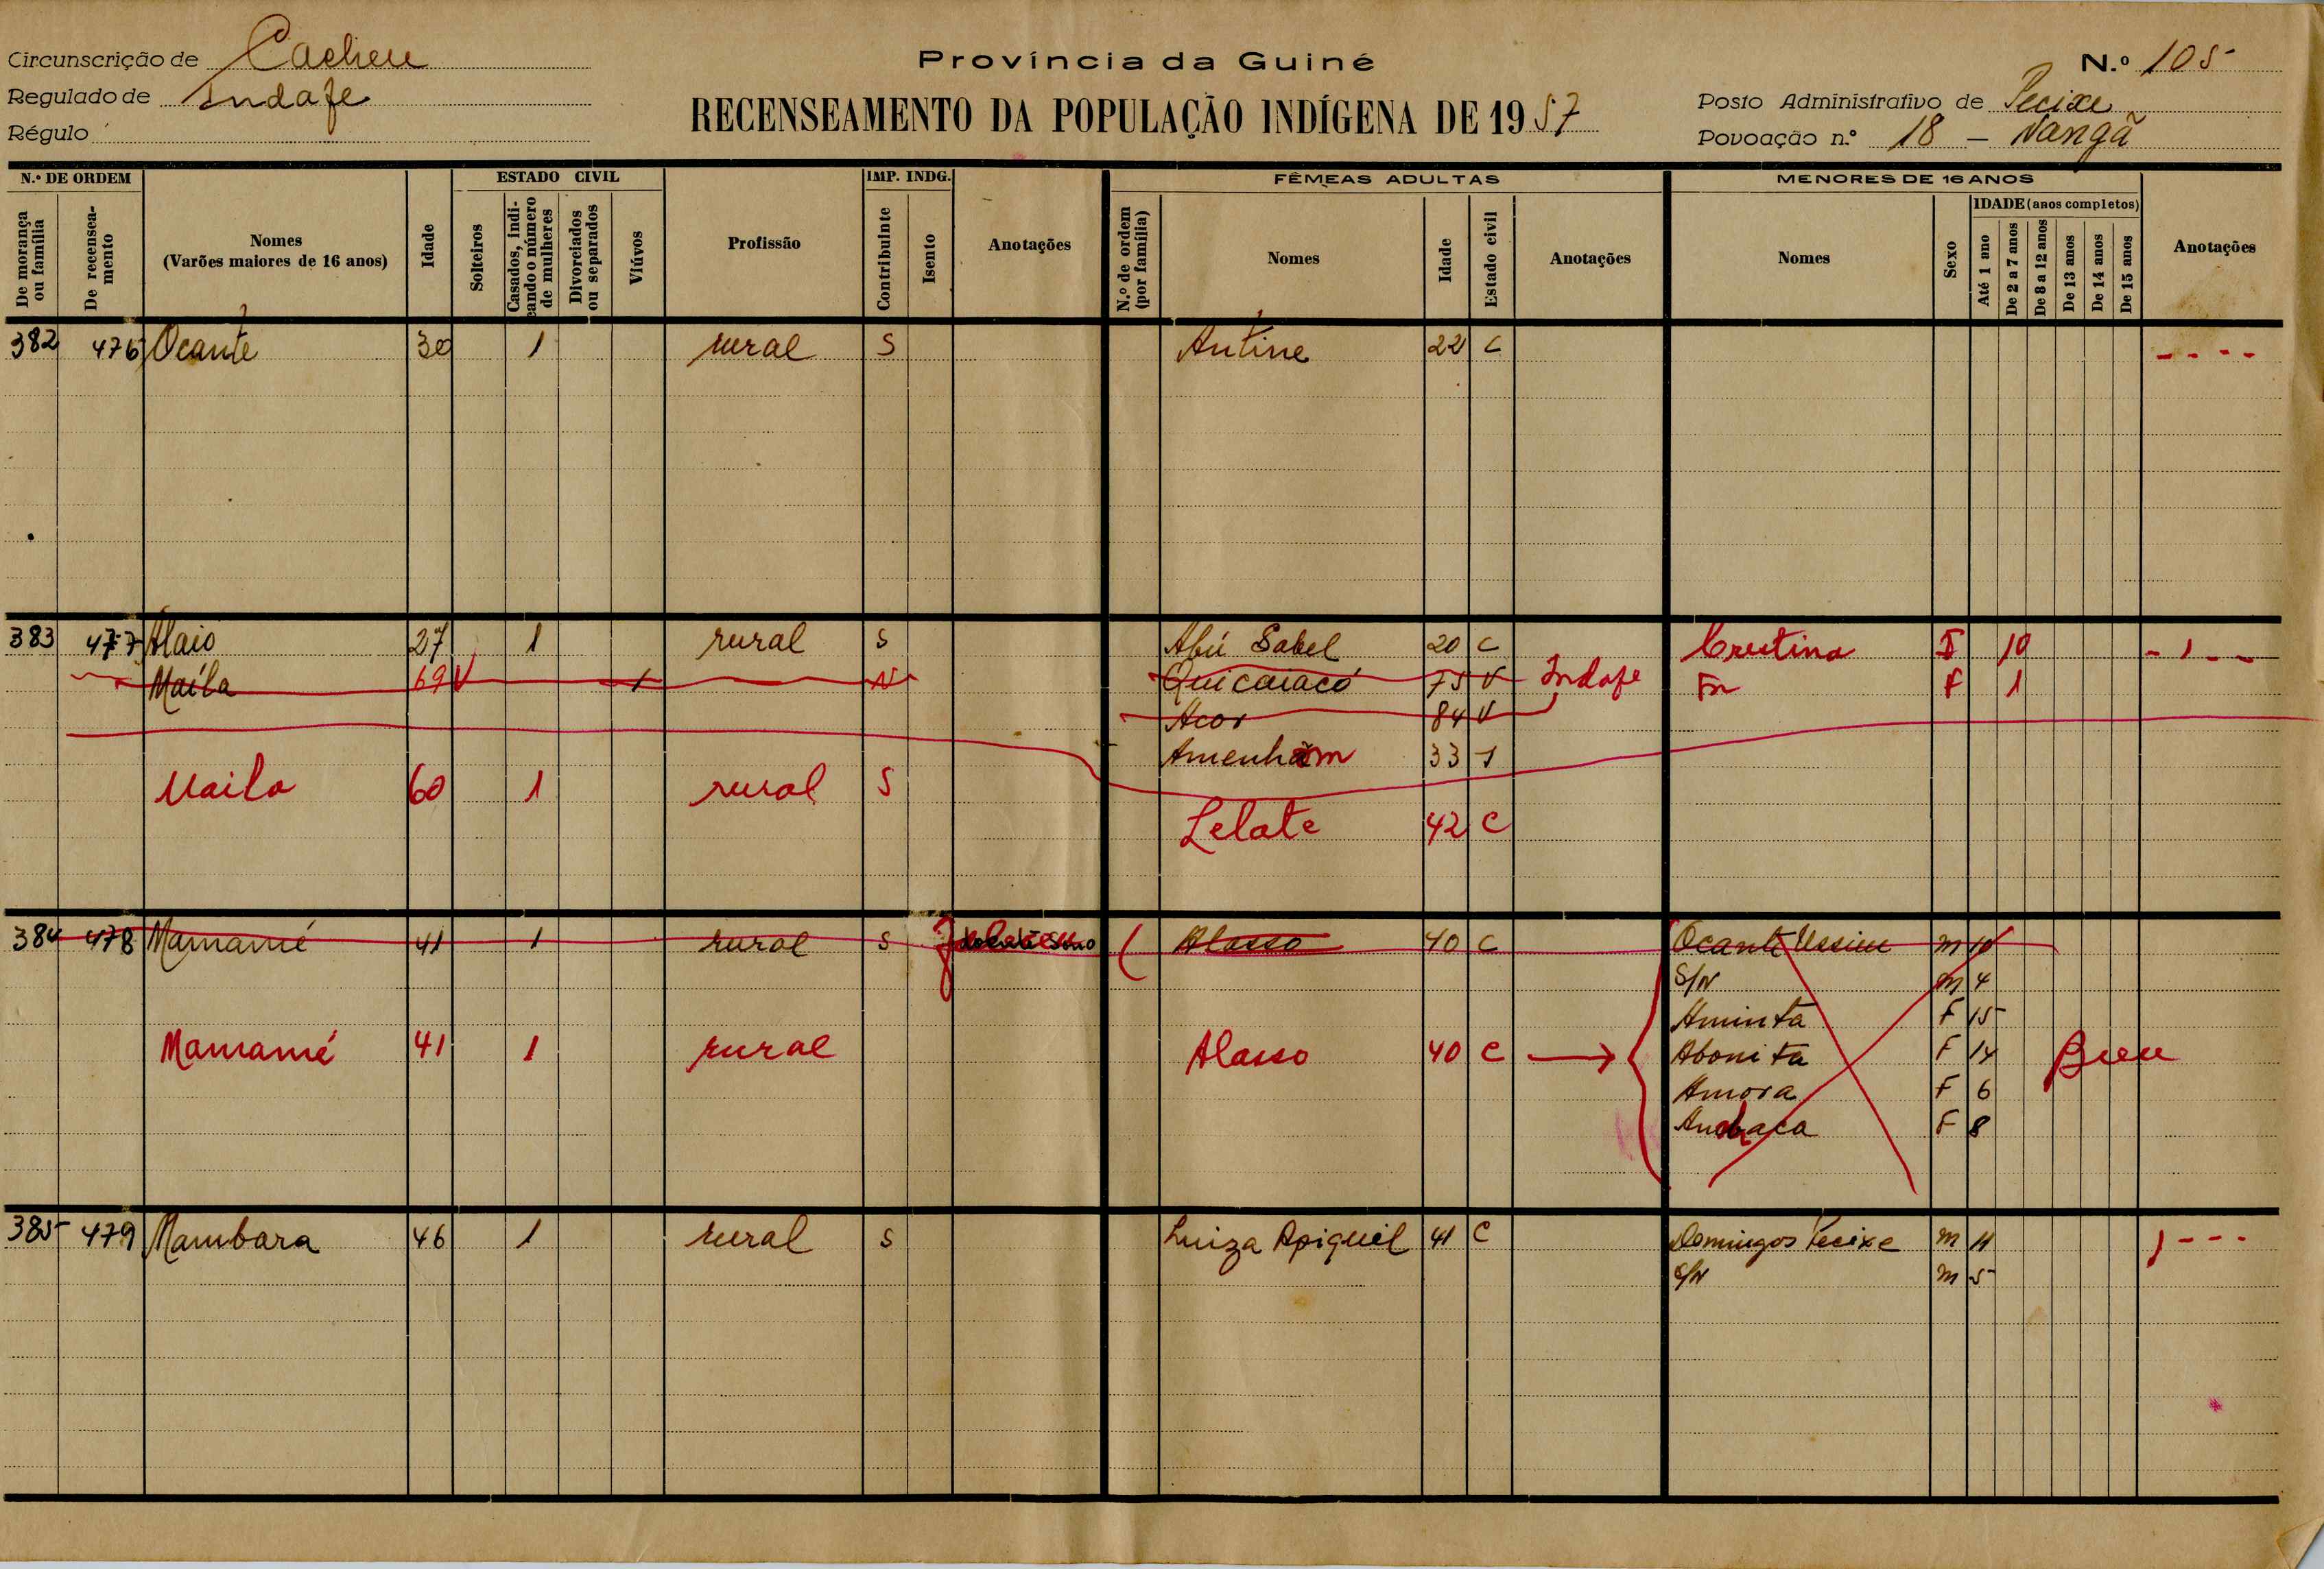 Circunscrição de Cacheu
Regulado de Indafe
Régulo
Província da Guiné
RECENSEAMENTO DA POPULAÇÃO INDÍGENA DE 1957
N.º 105
Posto Administrativo de Pecixe
Povoação n.º 18 - Nangã
N.º DE ORDEM
De morança ou família
De recenseamento
Nomes
(Varões maiores de 16 anos)
Idade
ESTADO CIVIL
Solteiros
Casados, indicando o número de mulheres
Divorciados ou separados
Viúvos
Profissão
IMP. INDG.
Contribuinte
Isento
Anotações
FÊMEAS ADULTAS
N.º de ordem (por família)
Nomes
Idade
Estado civil
Anotações
MENORES DE 16 ANOS
Nomes
Sexo
IDADE (anos completos)
Até 1 ano
De 2 a 7 anos
De 8 a 12 anos
De 13 anos
De 14 anos
De 15 anos
Anotações
382 476 Ocante 30 1 rural S Antine 22 C - - - -
383 477 Alaio 27 1 rural S Abú Sabel 20 C Crestina F 10 - 1 - -
Maíla 69 V 1 N Quicaiacó 75 V Indafe Fn F 1
Acor 84 V
Amenham 33 S
Maila 60 1 rural S
Lelate 42 C
384 478 Mamamé 41 1 rural S Alasso 40 C Ocante Ussieu m 10
S/N m 4
Aminta F 15
Mamamé 41 1 rural Alasso 40 C Abonita F 14 Bieu
Amora F 6
F 8
385 479 Mambara 46 1 rural S Luiza Apiquil 41 C Domingos Pecixe m 11 1 - - -
S/N m 5